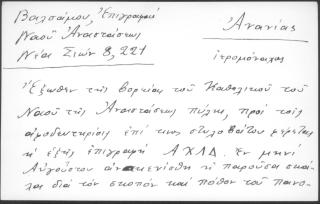 Βαλσάμου, Ἐπιγραφαὶ
Ναοῦ Ἀναστάσεως
Νέα Σιών 8, 221
Ἀνανίας
ἱερομόναχος
Ἔξωθεν τῆς βορείας τοῦ Καθολικοῦ τοῦ
Ναοῦ τῆς Ἀναστάσεως πύλης, πρὸς τοῖς
ἐπί τινος στυλοβάτου φέρεται
ἡ ἑξῆς ἐπιγραφή ΑΧΛΔ. Ἐν μηνὶ
Αὐγούστου ἀνακενίσθη ἡ παροῦσα σκά-
λα διὰ τὸν σκοπὸν καὶ πόθον τοῦ πανο-